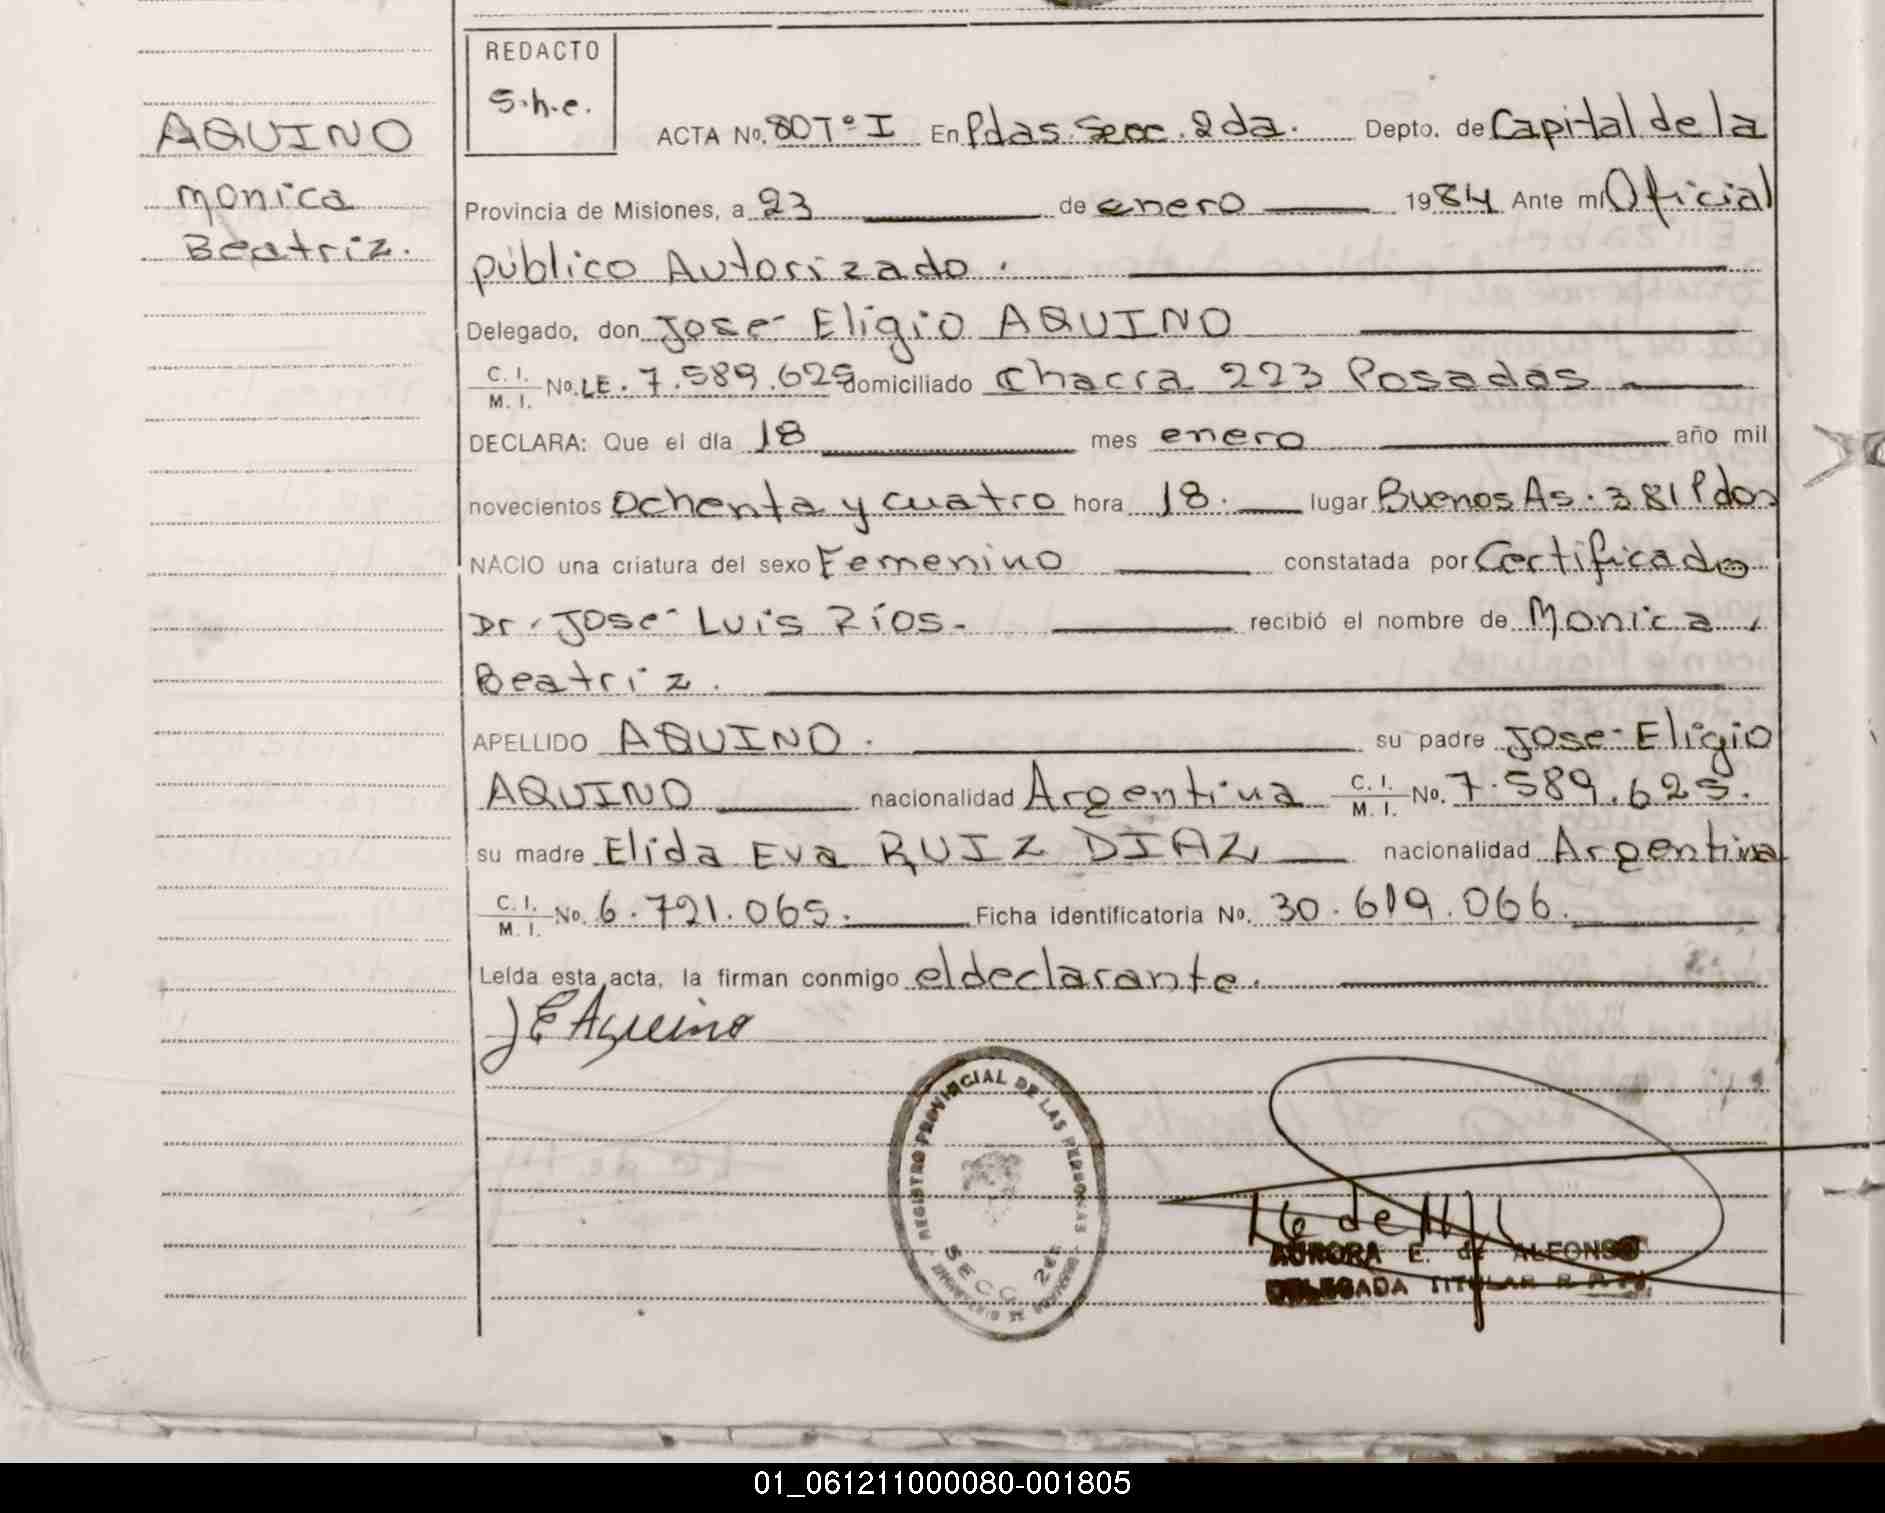 REDACTO
S.h.e.
AQUINO
Monica
Beatriz.
ACTA No. 80 Tº I En Pdas. Secc. 2da. Depto. de Capital de la
Provincia de Misiones, a 23 de enero 1984 Ante mi Oficial
público Autorizado.
Delegado, don José Eligio AQUINO
C. I. M. I. No. LE. 7.589.625 domiciliado Chacra 223 Posadas
DECLARA: Que el día 18 mes enero año mil
novecientos ochenta y cuatro hora 18. lugar Buenos As. 381 Pdas
NACIO una criatura del sexo Femenino constatada por Certificado
Dr. José Luis Ríos. recibió el nombre de Monica
Beatriz.
APELLIDO AQUINO. su padre José Eligio
AQUINO nacionalidad Argentina C. I. M. I. No. 7.589.625.
su madre Elida Eva RUIZ DIAZ nacionalidad Argentina
C. I. M. I. No. 6.721.065. Ficha identificatoria No. 30.619.066.
Leída esta acta, la firman conmigo el declarante.
J E Aquino
REGISTRO PROVINCIAL DE LAS PERSONAS
SECC. 2da
AURORA E. de ALFONSO
DELEGADA TITULAR R.P.P.
01_061211000080-001805